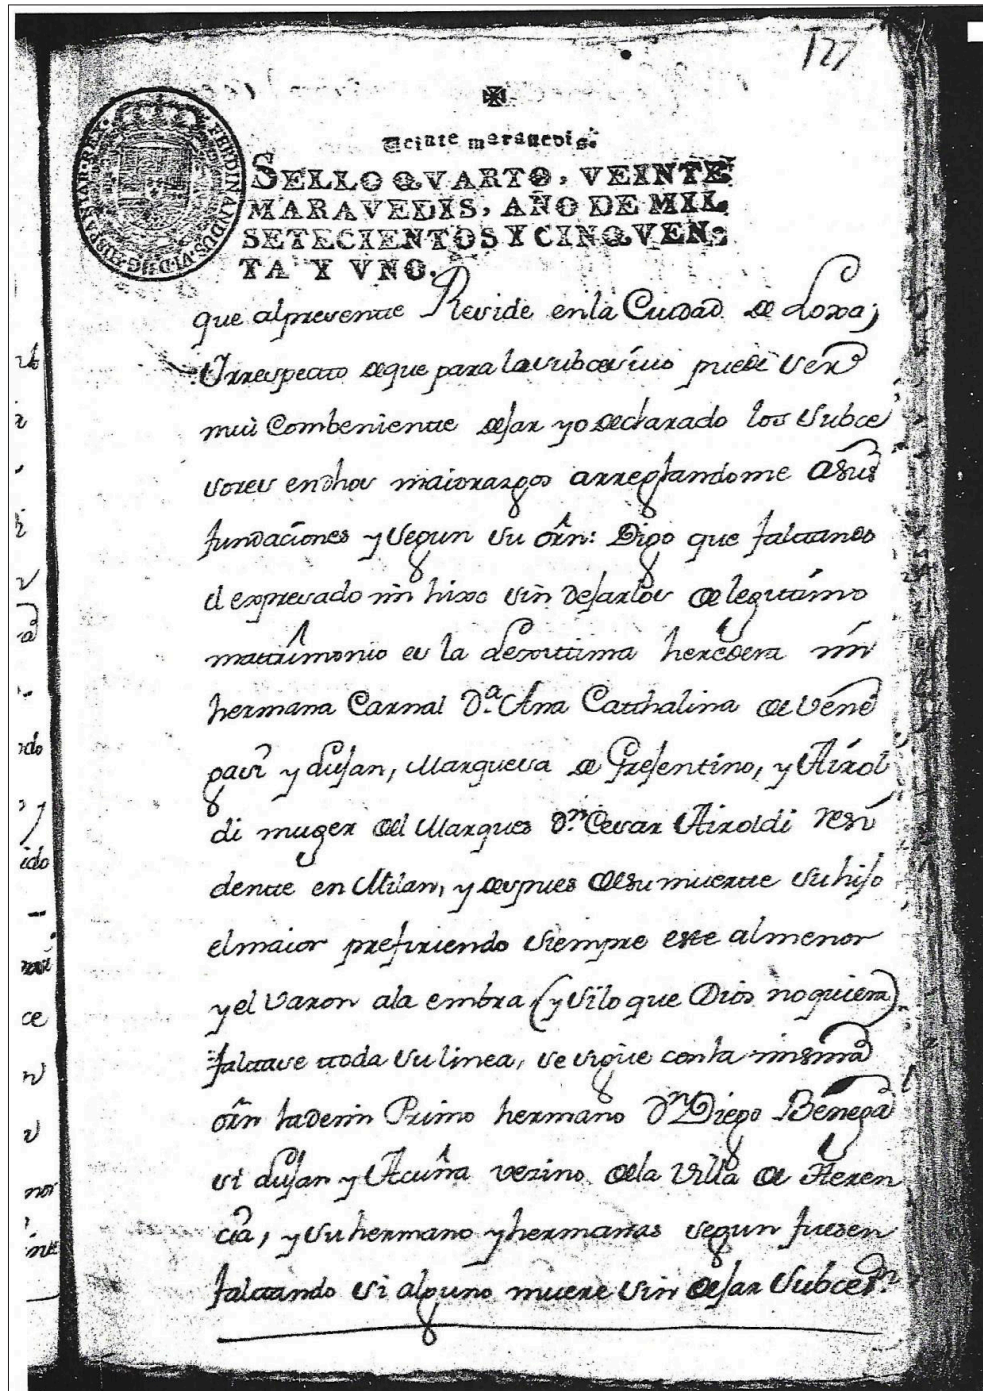 127
Veinte maravedis.
SELLO QVARTO, VEINTE
MARAVEDIS, AÑO DE MIL
SETECIENTOS Y CINQVEN-
TA Y VNO.
FERDINANDUS·VI·D·G·HISPANIAR·REX
que alpresente Reside enla Ciudad de Loxa;
Yrrespecto deque para lo subcesivo puede ser
mui Combeniente dejar yo declarado los subce
sores endhos maiorazgos arreglandome asus
fundaciones y segun su orn: Digo que faltando
el expresado mi hixo sin dejarlos de legitimo
mattrimonio es la lexittima heredera mi
hermana Carnal Da. Ana Catthalina de Vene
gasi y Lujan, Marquesa de Gresentino, y Airol
di muger del Marques Dn. Cesar Airoldi resi
dente en Milan, y despues desu muerte su hijo
el maior prefiriendo siempre este al menor
y el Varon ala embra (y silo que Dios no quiera)
faltase ttoda su linea, se sigue conla misma
orn lademi Primo hermano Dn. Diego Benega
si Lujan y Acuña vezino dela Villa de Heren
cia, y su hermano y hermanas segun fuesen
faltando si alguno muere sin dejar Subcen.